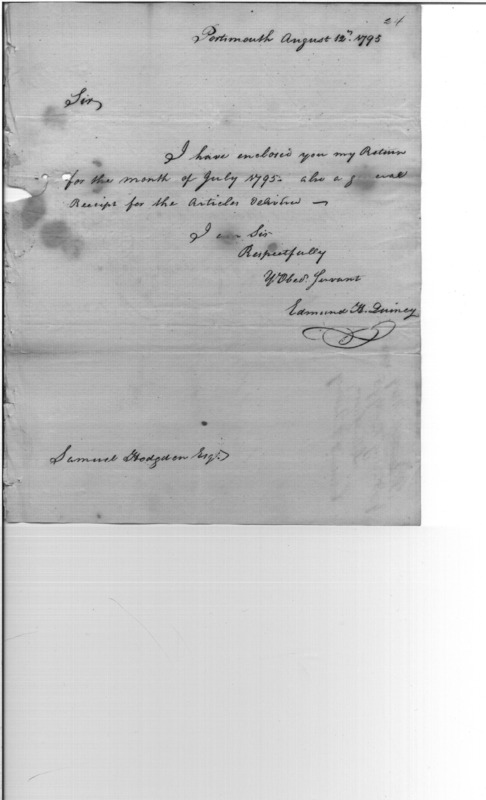 24
Portsmouth August 12th 1795
Sir,
I have enclosed you my Return
for the month of July 1795. also a general
Receipt for the Articles Delivered —
I am Sir
Respectfully
Yr Obedt Servant
Edmund H. Quincy
Samuel Hodgdon Esqr